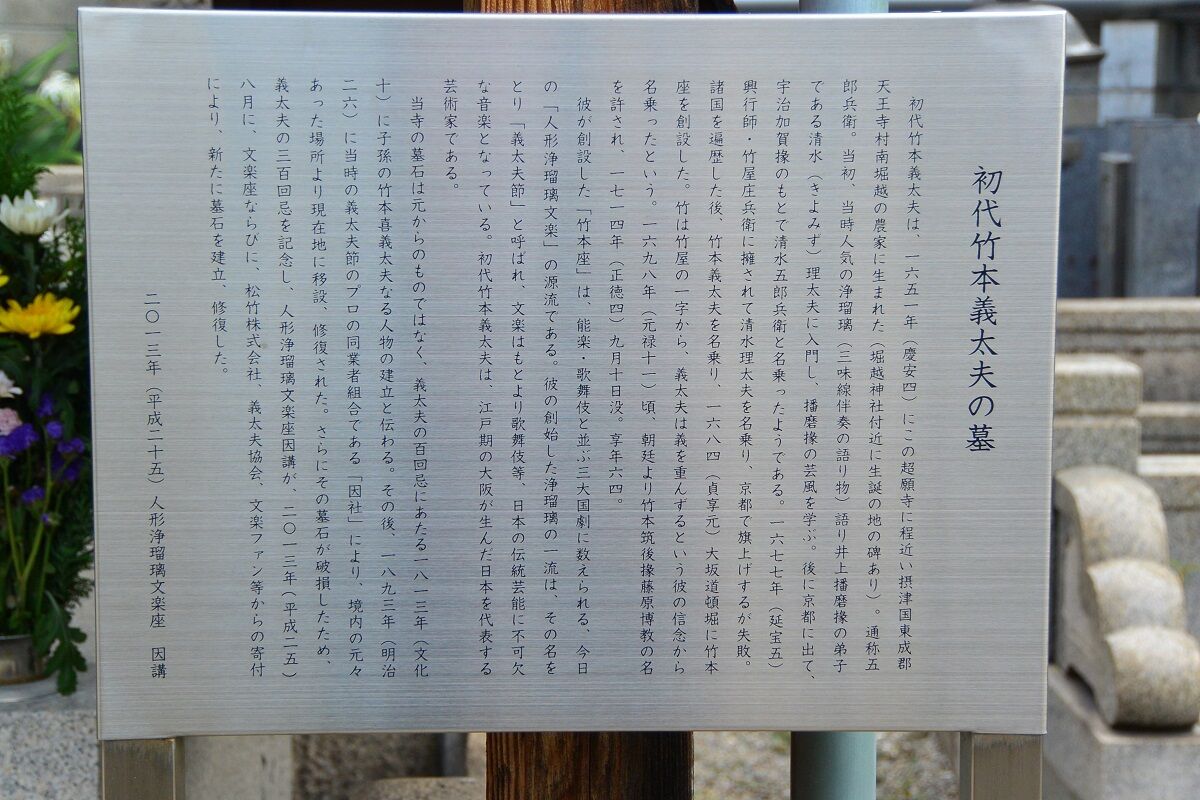 初代竹本義太夫の墓
初代竹本義太夫は、一六五一年（慶安四）にこの超願寺に程近い摂津国東成郡
天王寺村南堀越の農家に生まれた（堀越神社付近に生誕の地の碑あり）。通称五
郎兵衛。当初、当時人気の浄瑠璃（三味線伴奏の語り物）語り井上播磨掾の弟子
である清水（きよみず）理太夫に入門し、播磨掾の芸風を学ぶ。後に京都に出て、
宇治加賀掾のもとで清水五郎兵衛と名乗ったようである。一六七七年（延宝五）
興行師・竹屋庄兵衛に擁されて清水理太夫を名乗り、京都で旗上げするが失敗。
諸国を遍歴した後、竹本義太夫を名乗り、一六八四（貞享元）大坂道頓堀に竹本
座を創設した。竹は竹屋の一字から、義太夫は義を重んずるという彼の信念から
名乗ったという。一六九八年（元禄十一）頃、朝廷より竹本筑後掾藤原博教の名
を許され、一七一四年（正徳四）九月十日没。享年六四。
彼が創設した「竹本座」は、能楽・歌舞伎と並ぶ三大国劇に数えられる、今日
の「人形浄瑠璃文楽」の源流である。彼の創始した浄瑠璃の一流は、その名を
とり「義太夫節」と呼ばれ、文楽はもとより歌舞伎等、日本の伝統芸能に不可欠
な音楽となっている。初代竹本義太夫は、江戸期の大阪が生んだ日本を代表する
芸術家である。
当寺の墓石は元からのものではなく、義太夫の百回忌にあたる一八一三年（文化
十）に子孫の竹本喜義太夫なる人物の建立と伝わる。その後、一八九三年（明治
二六）に当時の義太夫節のプロの同業者組合である「因社」により、境内の元々
あった場所より現在地に移設、修復された。さらにその墓石が破損したため、
義太夫の三百回忌を記念し、人形浄瑠璃文楽座因講が、二〇一三年（平成二五）
八月に、文楽座ならびに、松竹株式会社、義太夫協会、文楽ファン等からの寄付
により、新たに墓石を建立、修復した。
二〇一三年（平成二十五）人形浄瑠璃文楽座　因講